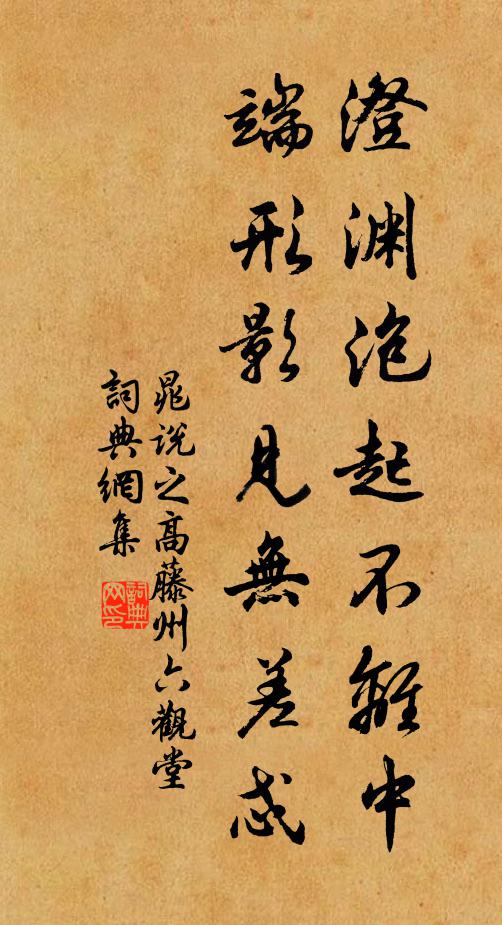 澄渊泡起不離中
端形影見無差忒
晁說之高藤州六觀堂
詞典網集
詞典
网印